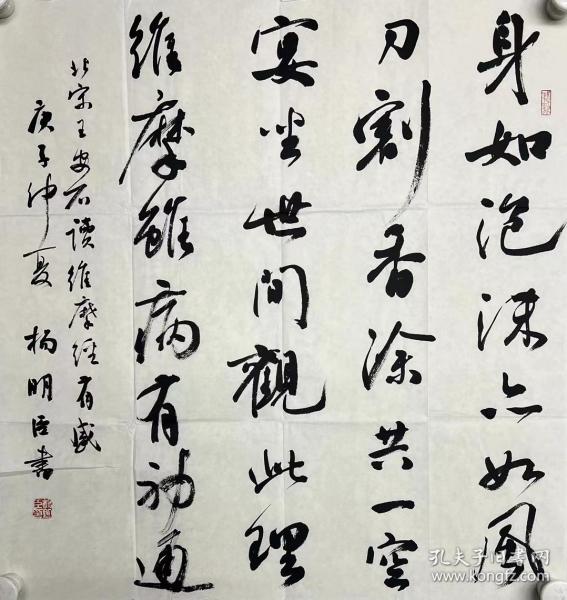 身如泡沫亦如風
刀割香塗共一空
宴坐世間觀此理
維摩雖病有神通
北宋王安石讀維摩經有感
庚子仲夏 楊明臣書
孔夫子旧书网
www.kongfz.com